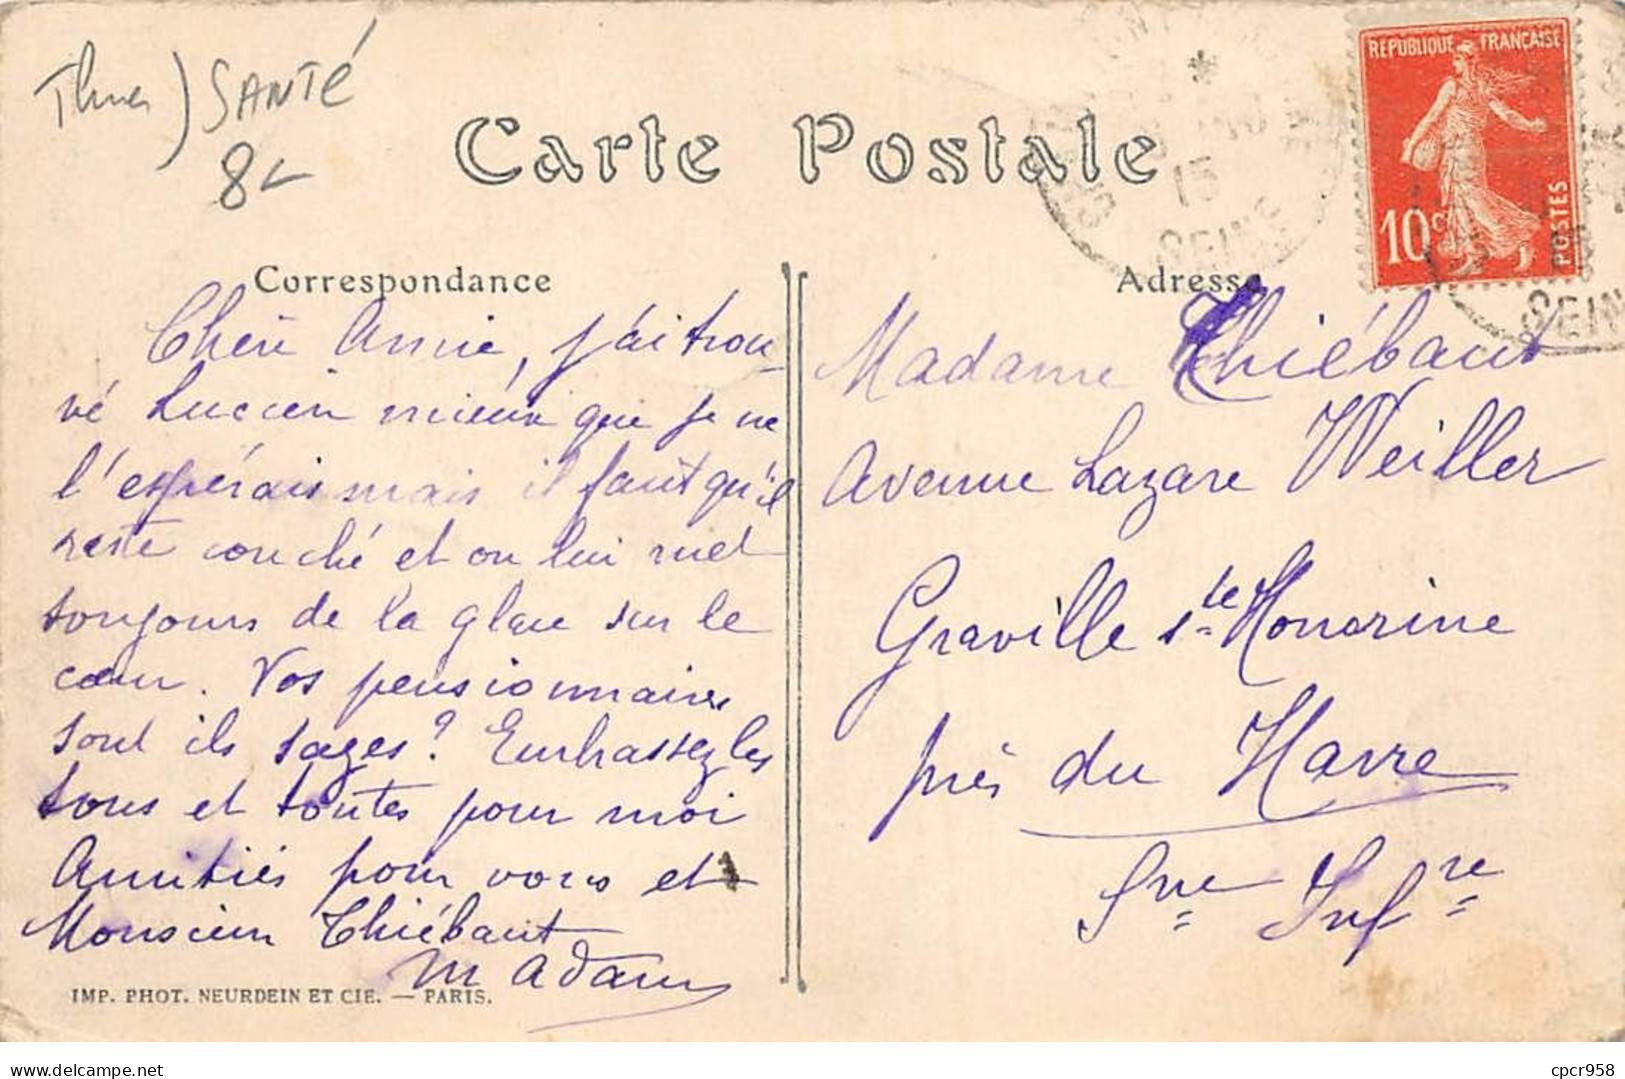 Thèmes ) SANTÉ
8
Carte Postale
15
SEINE
RÉPUBLIQUE FRANÇAISE
10c
POSTES
SEINE
Correspondance
Chère Annie, j'ai trou-
vé Lucien mieux que je ne
l'espérais mais il faut qu'il
reste couché et on lui met
toujours de la glace sur le
cœur. Vos pensionnaires
sont ils sages? Embrassez les
tous et toutes pour moi
Amitiés pour vous et
Monsieur Thiébaut
M Adam
Adresse
Madame Thiébaut
Avenue Lazare Weiller
Graville Ste Honorine
près du Havre
Sne Infre
IMP. PHOT. NEURDEIN ET CIE. — PARIS.
cpcr958